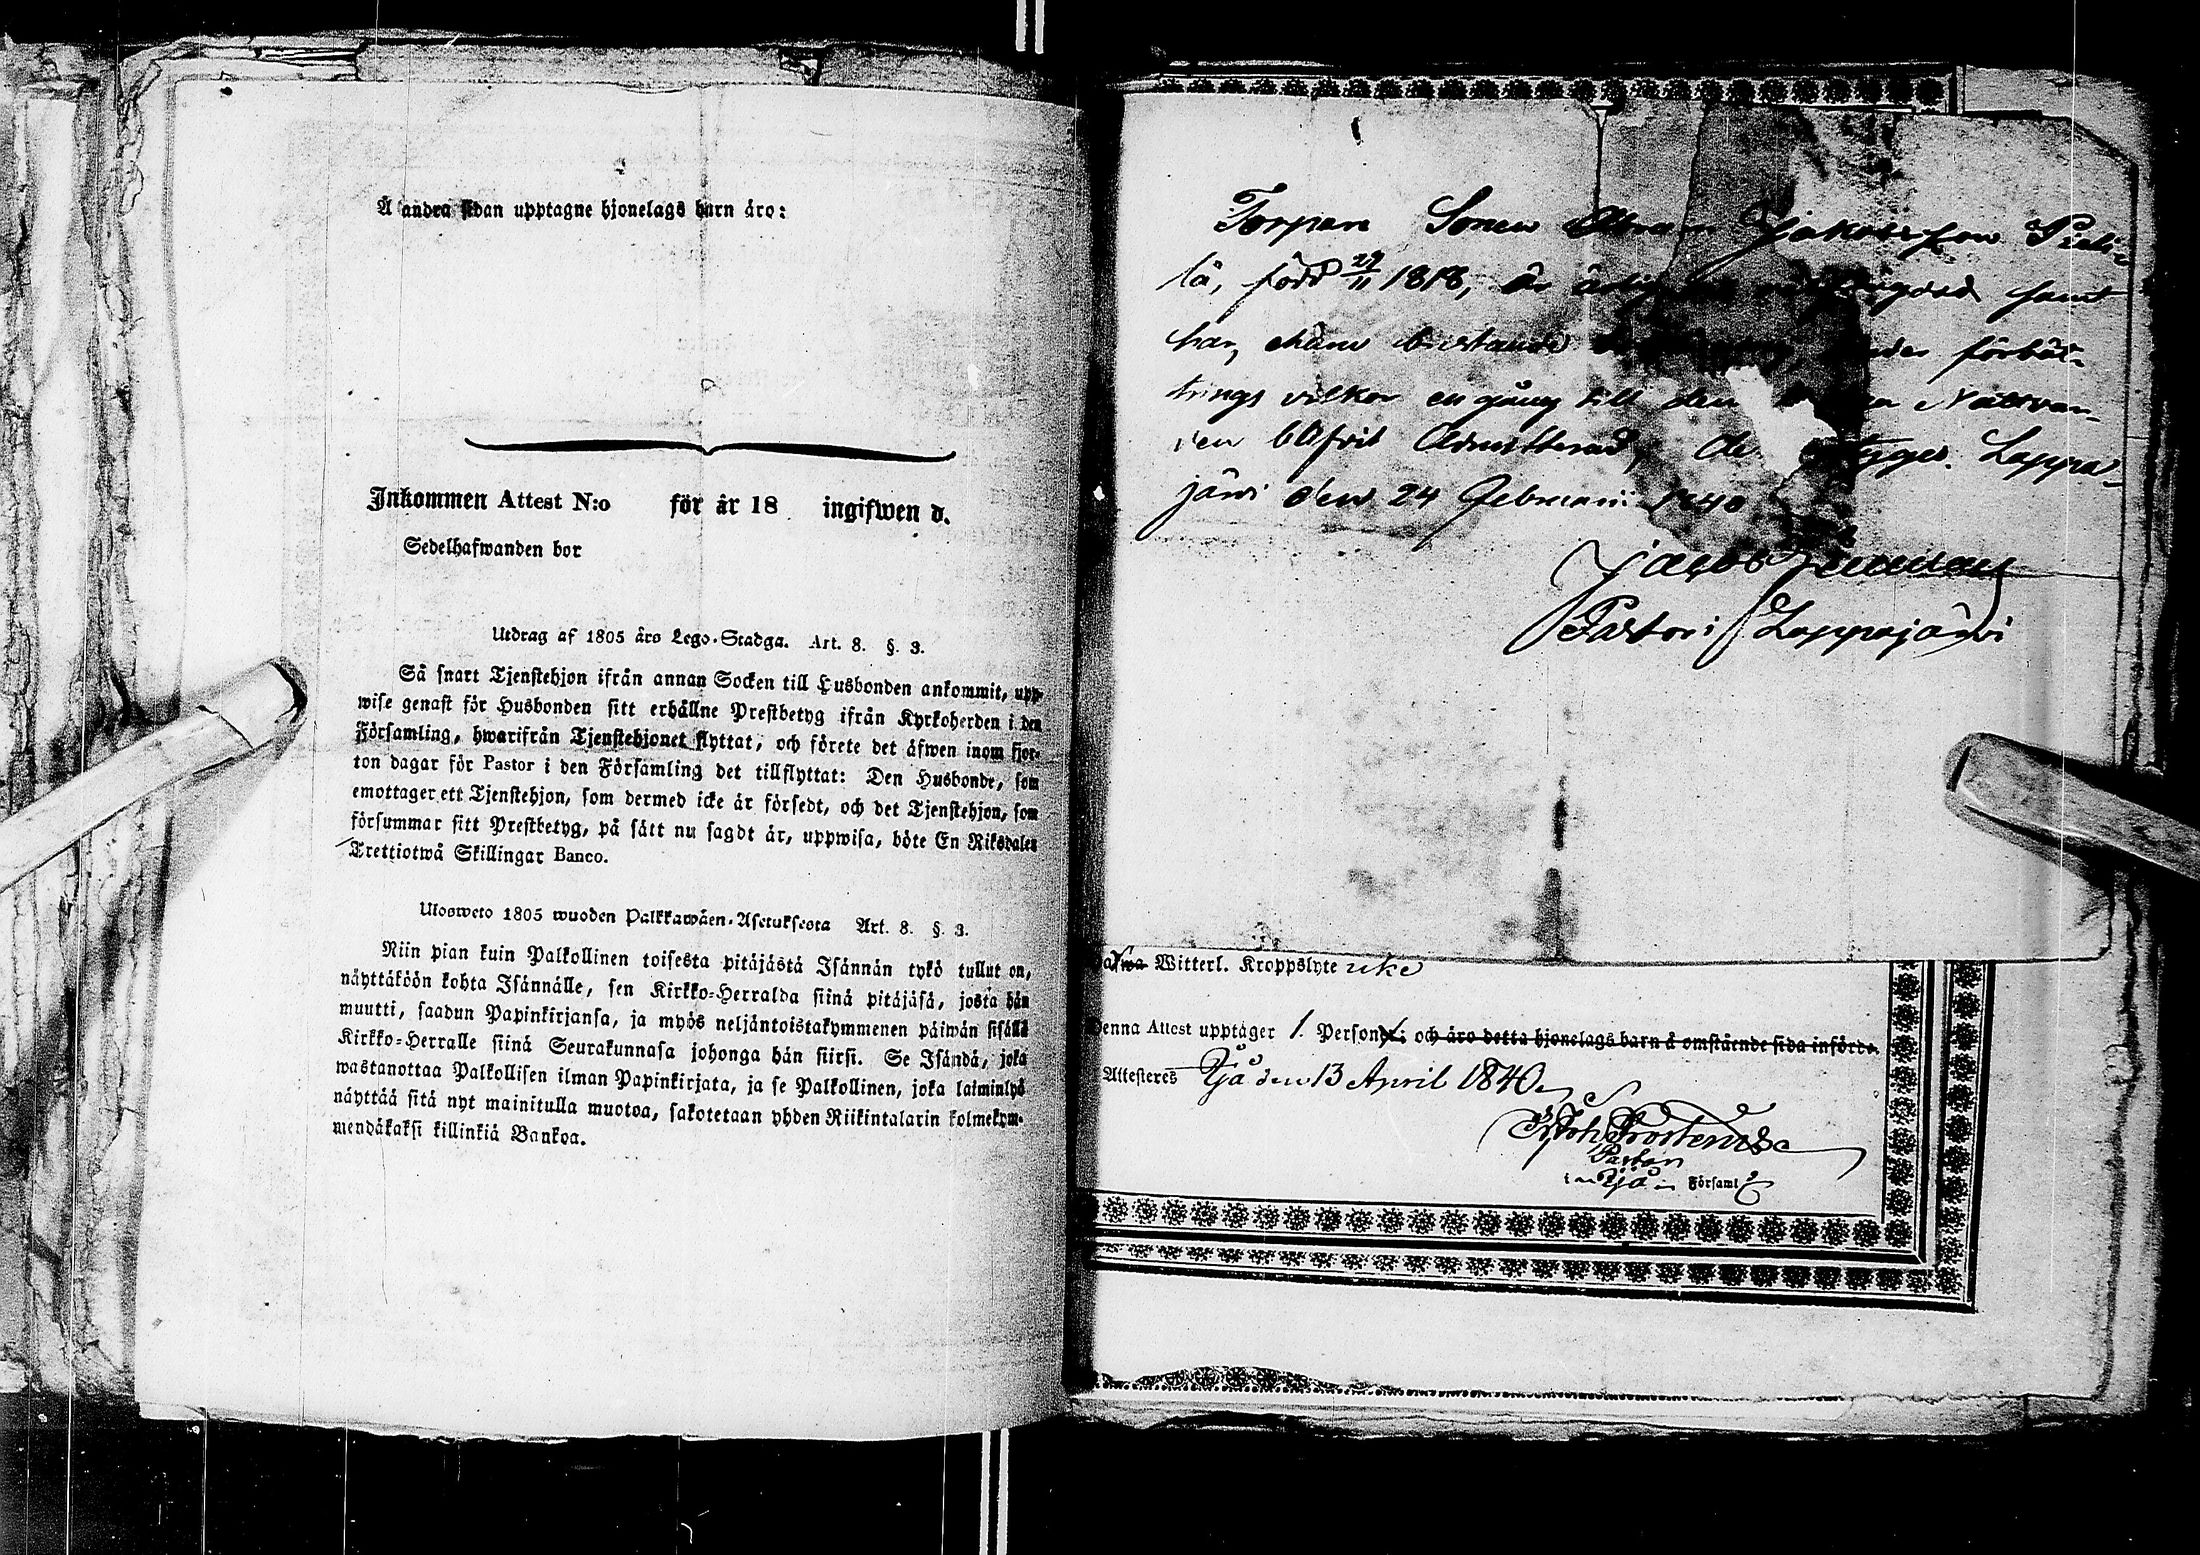 Å andra sidan upptagne hjonelags barn äro:
Inkommen Attest N:o för år 18 ingifwen d.
Sedelhafwanden bor
Utdrag af 1805 års Lego-Stadga. Art. 8. §. 3.
Så snart Tjenstehjon ifrån annan Socken till Husbonden ankommit, upp-
wise genast för Husbonden sitt erhållne Prestbetyg ifrån Kyrkoherden i den
Församling, hwarifrån Tjenstehjonet flyttat, och förete det äfwen inom fjor-
ton dagar för Pastor i den Församling det tillflyttat: Den Husbonde, som
emottager ett Tjenstehjon, som dermed icke är försedt, och det Tjenstehjon, som
försummar sitt Prestbetyg, på sätt nu sagdt är, uppwisa, böte En Riksdaler
Trettiotwå Skillingar Banco.
Ulosweto 1805 wuoden Palkkawäen-Asetuksesta Art. 8. §. 3.
Niin pian kuin Palkollinen toisesta pitäjästä Isännän tykö tullut on,
näyttäköön kohta Isännälle, sen Kirkko-Herralda siinä pitäjäsä, josta hän
muutti, saadun Papinkirjansa, ja myös neljäntoistakymmenen päiwän sisällä
Kirkko-Herralle siinä Seurakunnasa johonga hän siirsi. Se Isändä, joka
wastanottaa Palkollisen ilman Papinkirjata, ja se Palkollinen, joka laiminlyö
näyttää sitä nyt mainitulla muotoa, sakotetaan yhden Riikintalarin kolmekym-
mendäkaksi killinkiä Bankoa.
Torpare Sonen Abram Jakobsson Pieti-
lä, född 29/11 1818, är samt
har, bristande förbät-
trings vilkor en gång till den Nattvar-
den blifvit Admitterad, Lappa-
järvi den 24 Februarii 1840
Jacob
Pastor i Lappajärvi
Witterl. Kroppslyte icke
Denna Attest upptager 1. Person; och äro detta hjonelags barn å omstående sida införde.
Attesteras Yjå den 13 April 1840.
Joh Frosterus
Pastor
i Yjå Församl